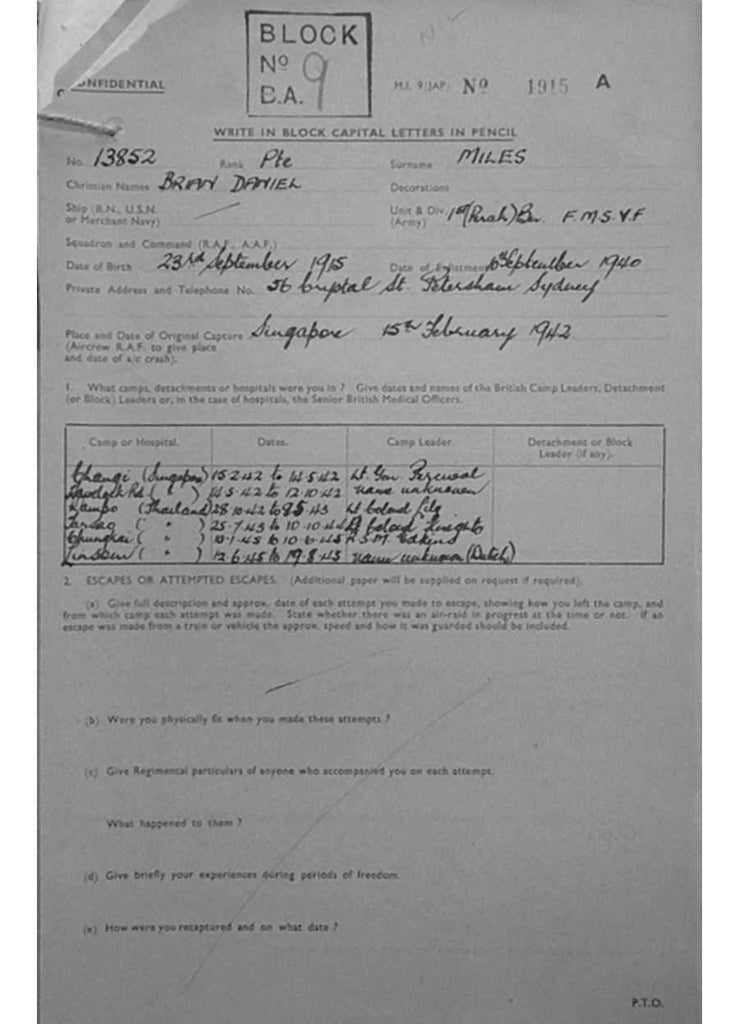 BLOCK
No 9
B.A.
CONFIDENTIAL
M.I. 9/JAP/ No 1915 A
WRITE IN BLOCK CAPITAL LETTERS IN PENCIL
No. 13852 Rank Pte Surname MILES
Christian Names BRIAN DANIEL Decorations
Ship (R.N., U.S.N. or Merchant Navy) Unit & Div. (Army) 1st (Perak) Bn. F.M.S.V.F
Squadron and Command (R.A.F., A.A.F.)
Date of Birth 23rd September 1915 Date of Enlistment September 1940
Private Address and Telephone No. 56 St. Petersham Sydney
Place and Date of Original Capture Singapore 15th February 1942
(Aircrew R.A.F. to give place
and date of a/c crash).
1. What camps, detachments or hospitals were you in? Give dates and names of the British Camp Leaders, Detachment
(or Block) Leaders or, in the case of hospitals, the Senior British Medical Officers.
Camp or Hospital. Dates. Camp Leader. Detachment or Block Leader (if any).
Changi (Singapore) 15.2.42 to 14.5.42 Lt. Gen. Percival
Havelock Rd ( " ) 14.5.42 to 12.10.42 name unknown
(Thailand) 28.10.42 to 8.5.43 Lt Colonel
( " ) 25.7.43 to 10.10.44 Lt Colonel
Chungkai ( " ) 10.1.45 to 10.6.45 R.S.M.
( " ) 12.6.45 to 19.8.45 name unknown (Dutch)
2. ESCAPES OR ATTEMPTED ESCAPES. (Additional paper will be supplied on request if required).
(a) Give full description and approx. date of each attempt you made to escape, showing how you left the camp, and
from which camp each attempt was made. State whether there was an air-raid in progress at the time or not. If an
escape was made from a train or vehicle the approx. speed and how it was guarded should be included.
(b) Were you physically fit when you made these attempts ?
(c) Give Regimental particulars of anyone who accompanied you on each attempt.
What happened to them ?
(d) Give briefly your experiences during periods of freedom.
(e) How were you recaptured and on what date ?
P.T.O.